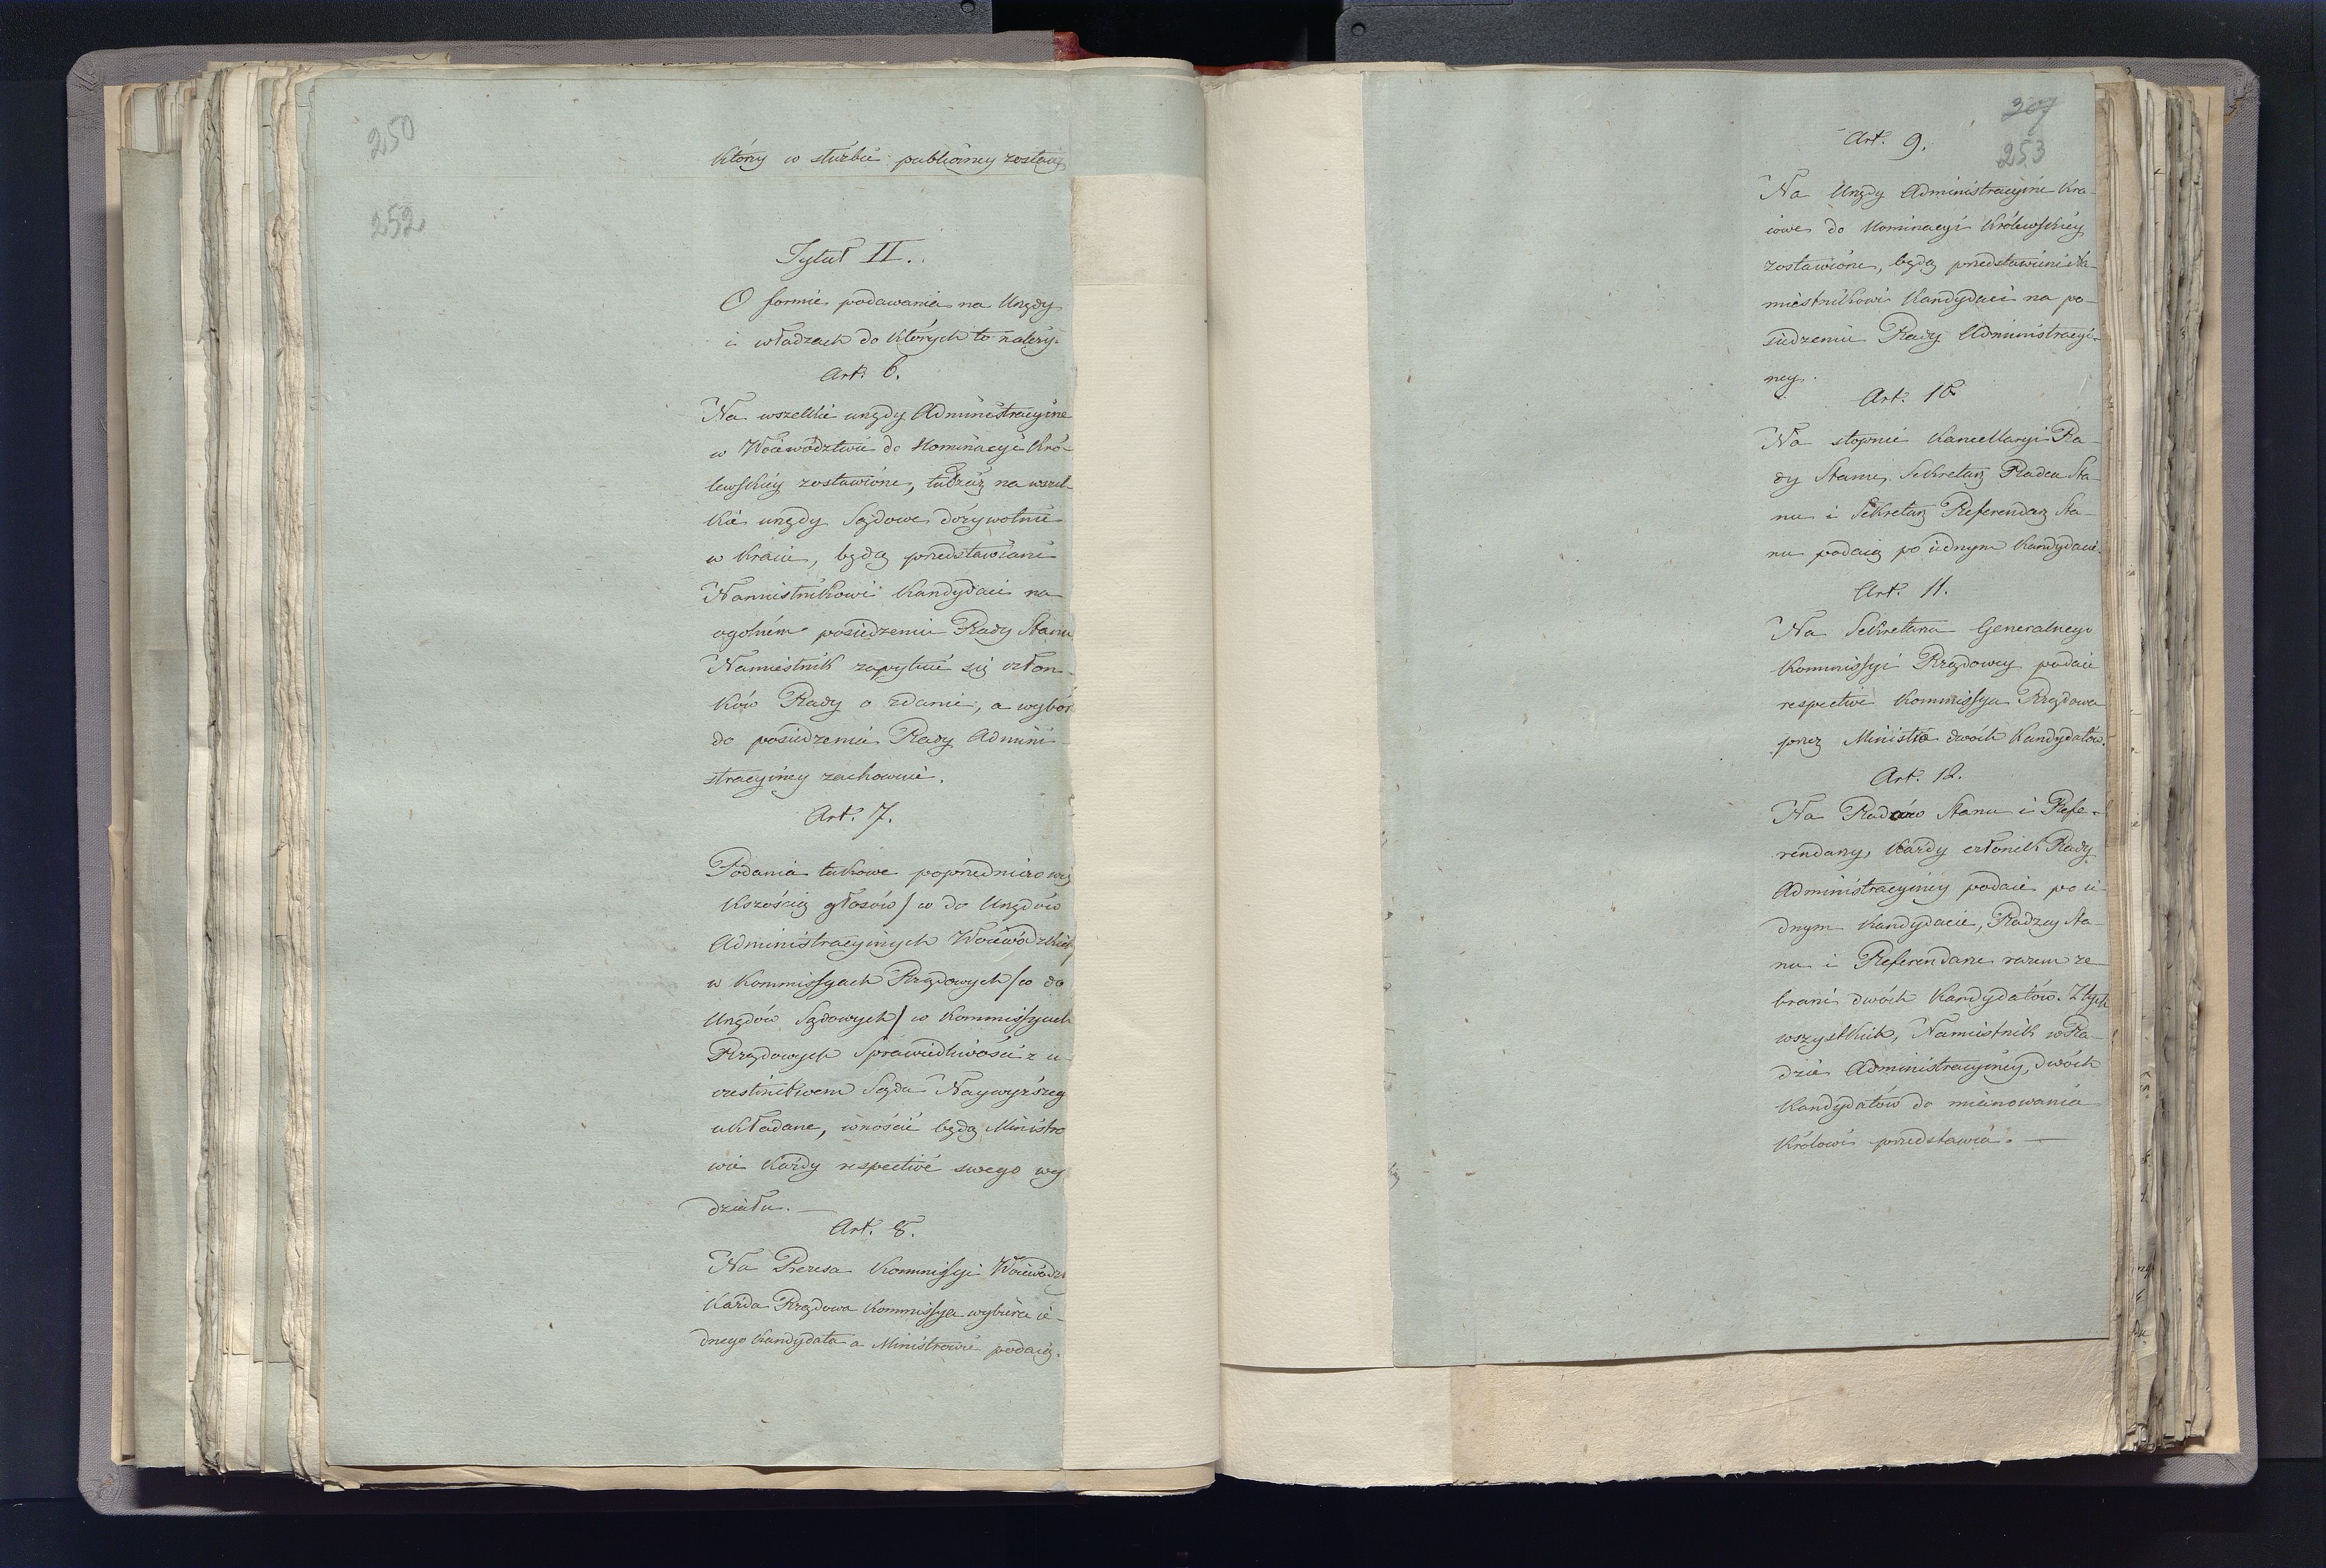 250
252
który w służbie publiczney zostaią
Tytuł II.
O formie podawania na Urzędy
i władzach do których to należy.
Art. 6.
Na wszelkie urzędy Administracyine
w Woiewództwie do Nominacyi Kró-
lewskiey zostawione, tudzież na wszel-
kie urzędy Sądowe dożywotnie
w Kraiu, będą przedstawiani
Namiestnikowi Kandydaci na
ogolném posiedzeniu Rady Stanu
Namiestnik zapytuie się człon-
ków Rady o zdanie, a wybór
do posiedzenia Rady Admini-
stracyiney zachowuie.
Art. 7.
Podania takowe poprzedniczo wię
kszością głosów / co do Urzędów
Administracyinych Woiewódzkich/
w Kommissyach Rządowych / co do
Urzędów Sądowych / w Kommissyach
Rządowych Sprawiedliwości z u-
czestnictwem Sądu Naywyższeg
układane, wnosić będą Ministro
wie każdy respective swego wy
działu. —
Art. 8.
Na Prezesa Kommissyi Woiewódz
każda Rządowa Kommissya wybiera ie-
dnego Kandydata a Ministrowie podaią.
307
253
Art. 9.
Na Urzędy Administracyine Kra-
iowe do Nominacyi Królewskiey
zostawione, będą przedstawieni Na-
miestnikowi Kandydaci na po-
siedzeniu Rady Administracyi-
ney.
Art. 10
Na stopnie Kancellaryi Ra-
dy Stanu, Sekretarz Radca Sta-
nu i Sekretarz Referendarz Sta-
nu podaią po iednym Kandydacie.
Art. 11.
Na Sekretarza Generalnego
Kommissyi Rządowey podaie
respective Kommissya Rządowa
przez Ministra dwóch Kandydatów.
Art. 12.
Na Radców Stanu i Refe-
rendarzy, każdy członek Rady
Administracyiney podaie po ie
dnym Kandydacie, Radzcy Sta-
nu i Referendarze razem ze-
brani dwóch Kandydatów. Z tych
wszystkich, Namiestnik w Ra-
dzie Administracyiney, dwóch
Kandydatów do mianowania
Królowi przedstawia. —